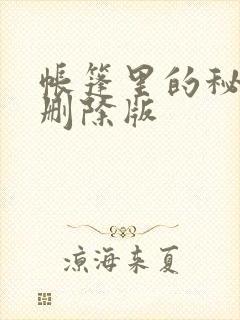 帐篷里的秘
删除版
凉海来夏